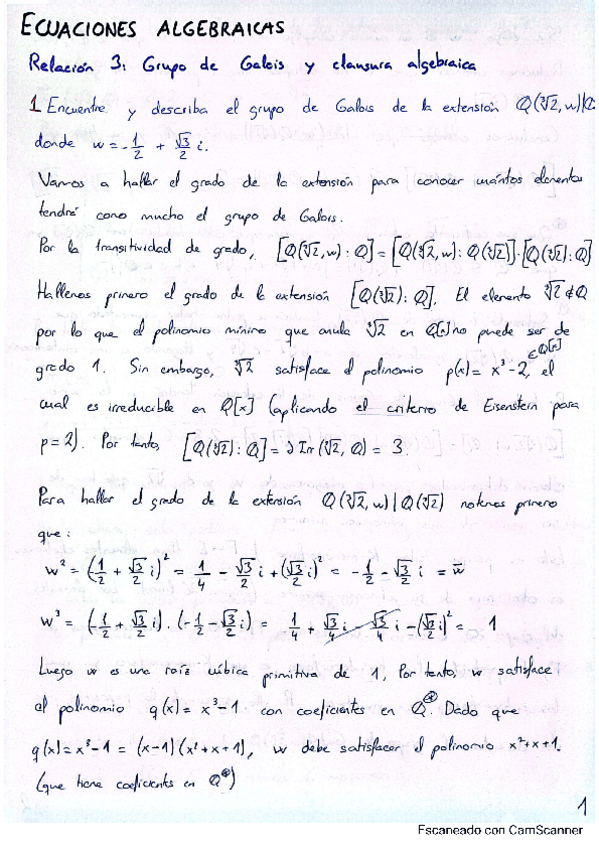 ECUACIONES ALGEBRAICAS
Relación 3: Grupo de Galois y clausura algebraica
1 Encuentre y describa el grupo de Galois de la extensión Q(∛2, w)|Q
donde w = -1/2 + √3/2 i.
Vamos a hallar el grado de la extensión para conocer cuántos elementos
tendrá como mucho el grupo de Galois.
Por la transitividad de grado, [Q(∛2, w) : Q] = [Q(∛2, w) : Q(∛2)]·[Q(∛2) : Q]
Hallemos primero el grado de la extensión [Q(∛2) : Q]. El elemento ∛2 ∉ Q
por lo que el polinomio mínimo que anula ∛2 en Q[x] no puede ser de
grado 1. Sin embargo, ∛2 satisface el polinomio p(x) = x³-2, ∈Q[x] el
cual es irreducible en Q[x] (aplicando el criterio de Eisenstein para
p=2). Por tanto, [Q(∛2) : Q] = ∂ Irr(∛2, Q) = 3
Para hallar el grado de la extensión Q(∛2, w)|Q(∛2) notemos primero
que:
w² = (-1/2 + √3/2 i)² = 1/4 - √3/2 i + (√3/2 i)² = -1/2 - √3/2 i = w̅
w³ = (-1/2 + √3/2 i)·(-1/2 - √3/2 i) = 1/4 + √3/4 i - √3/4 i - (√3/2 i)² = 1
Luego w es una raíz cúbica primitiva de 1. Por tanto, w satisface
el polinomio q(x) = x³-1 con coeficientes en Q. Dado que
q(x) = x³-1 = (x-1)(x²+x+1), w debe satisfacer el polinomio x²+x+1.
(que tiene coeficientes en Q)
1
Escaneado con CamScanner